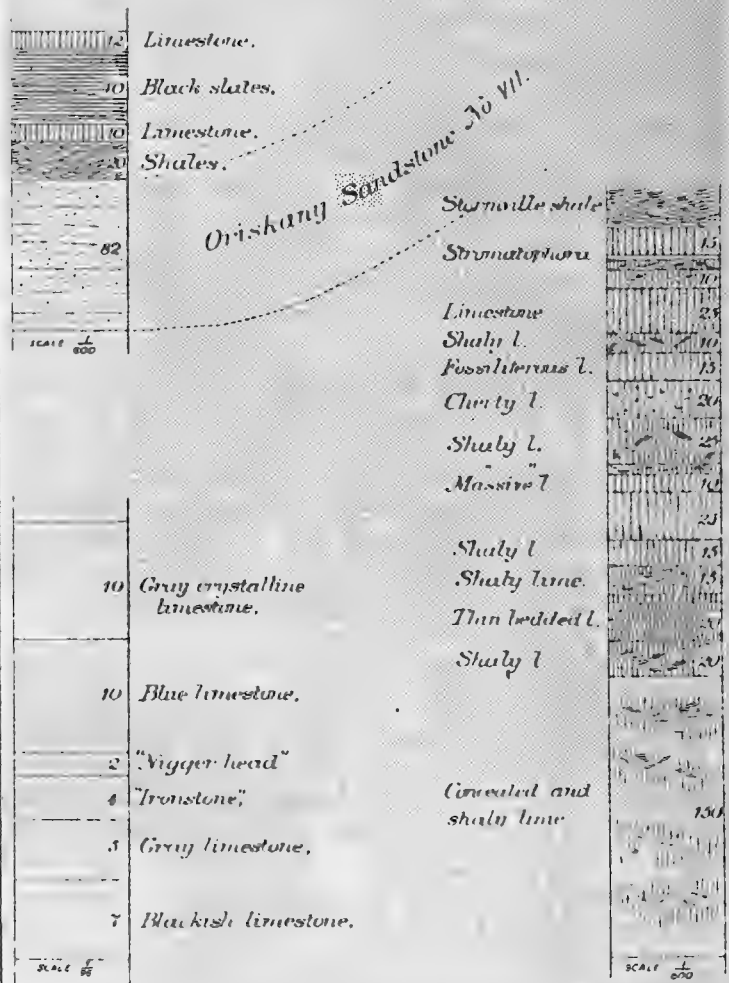 12 Limestone.
40 Black slates.
10 Limestone.
20 Shales.
82
SCALE 1/600
Oriskany Sandstone No VII.
10 Gray crystalline
limestone.
10 Blue limestone.
2 "Nigger head"
4 "Ironstone",
5 Gray limestone.
7 Blackish limestone.
SCALE
Stormville shale
Stromatopora 15
10
Limestone 25
Shaly l. 10
Fossiliferous l. 15
Cherty l. 20
Shaly l. 25
"Massive" l 10
25
Shaly l 15
Shaly lime. 15
Thin bedded l. 20
Shaly l 20
Concealed and
shaly lime 150
SCALE 1/600